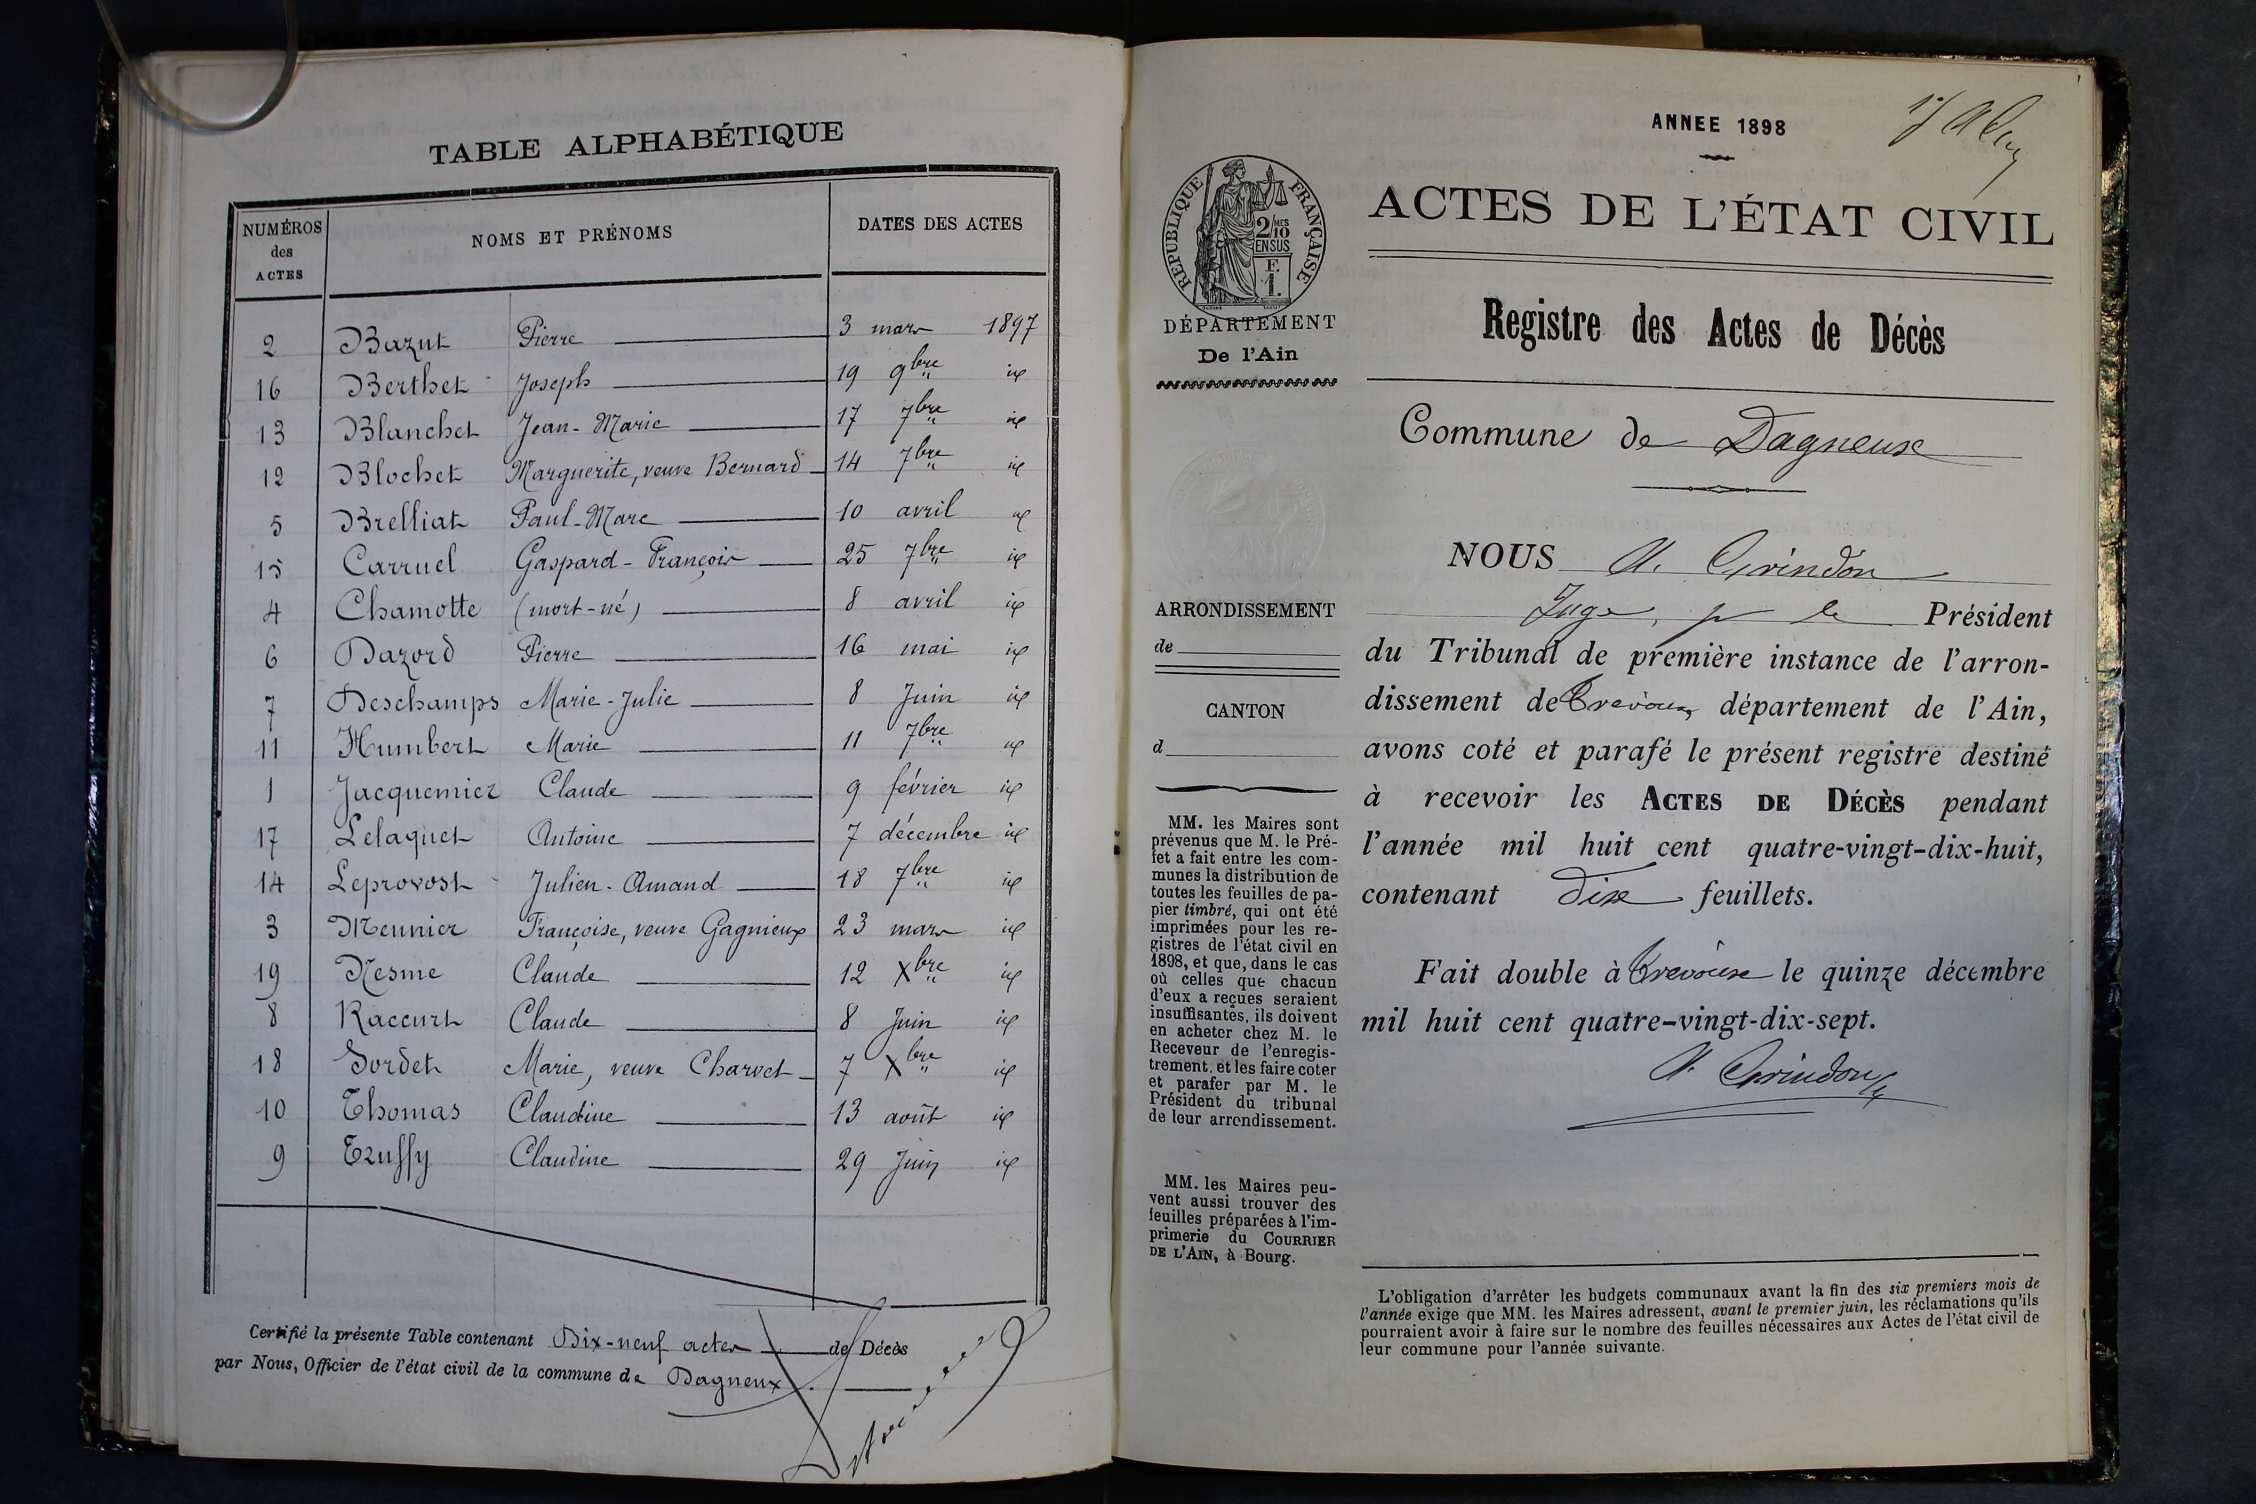 TABLE ALPHABÉTIQUE
NUMÉROS des ACTES NOMS ET PRÉNOMS DATES DES ACTES
2 Bazut Pierre 3 mars 1897
16 Berthet Joseph 19 9bre id
13 Blanchet Jean-Marie 17 7bre id
12 Blochet Marguerite, veuve Bernard 14 7bre id
5 Brelliat Paul-Marc 10 avril id
15 Carruel Gaspard-François 25 7bre id
4 Chamotte (mort-né) 8 avril id
6 Dazord Pierre 16 mai id
7 Deschamps Marie-Julie 8 Juin id
11 Humbert Marie 11 7bre id
1 Jacquemier Claude 9 février id
17 Lelaquet Antoine 7 décembre id
14 Leprovost Julien-Amand 18 7bre id
3 Meunier Françoise, veuve Gagnieux 23 mars id
19 Nesme Claude 12 Xbre id
8 Raccurt Claude 8 Juin id
18 Sordet Marie, veuve Charvet 7 Xbre id
10 Thomas Claudine 13 août id
9 Truffy Claudine 29 Juin id
Certifié la présente Table contenant Dix-neuf actes de Décès
par Nous, Officier de l'état civil de la commune de Dagneux.
ANNEE 1898
ACTES DE L'ÉTAT CIVIL
REPUBLIQUE FRANÇAISE
2/10 MES
EN SUS
F.
1.
DÉPARTEMENT
De l'Ain
Registre des Actes de Décès
Commune de Dagneux
ARRONDISSEMENT
de
CANTON
d
MM. les Maires sont
prévenus que M. le Pré-
fet a fait entre les com-
munes la distribution de
toutes les feuilles de pa-
pier timbré, qui ont été
imprimées pour les re-
gistres de l'état civil en
1898, et que, dans le cas
où celles que chacun
d'eux a reçues seraient
insuffisantes, ils doivent
en acheter chez M. le
Receveur de l'enregis-
trement, et les faire coter
et parafer par M. le
Président du tribunal
de leur arrondissement.
MM. les Maires peu-
vent aussi trouver des
feuilles préparées à l'im-
primerie du COURRIER
DE L'AIN, à Bourg.
NOUS A. Grindon
Juge, pr le Président
du Tribunal de première instance de l'arron-
dissement de Trévoux, département de l'Ain,
avons coté et parafé le présent registre destiné
à recevoir les ACTES DE DÉCÈS pendant
l'année mil huit cent quatre-vingt-dix-huit,
contenant dix feuillets.
Fait double à Trévoux le quinze décembre
mil huit cent quatre-vingt-dix-sept.
A. Grindon
L'obligation d'arrêter les budgets communaux avant la fin des six premiers mois de
l'année exige que MM. les Maires adressent, avant le premier juin, les réclamations qu'ils
pourraient avoir à faire sur le nombre des feuilles nécessaires aux Actes de l'état civil de
leur commune pour l'année suivante.